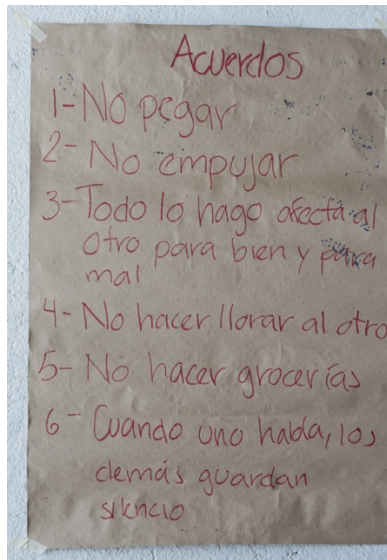 Acuerdos
1- No pegar
2- No empujar
3- Todo lo hago afecta al
otro para bien y para
mal
4- No hacer llorar al otro
5- No hacer grocerías
6- Cuando uno habla, los
demás guardan
silencio